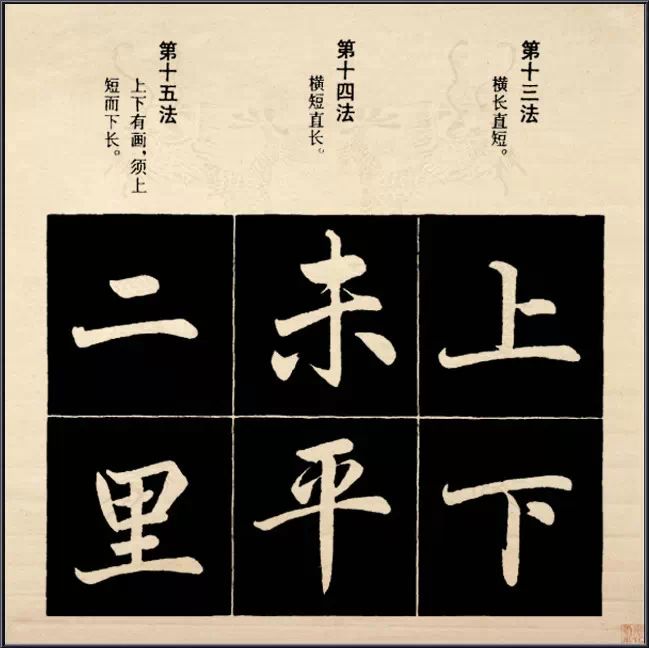 第十三法
横长直短。
第十四法
横短直长。
第十五法
上下有画，须上
短而下长。
上
下
未
平
二
里